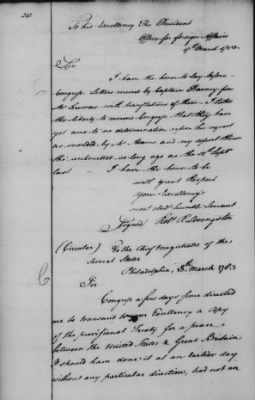 To his Excellency The President
Office for foreign Affairs
March
Sir
I have the honor to lay before
Congress Letters received by Captain Barney from
Mr. with translations of them. I take
the liberty to remind Congress that they have
yet come to no determination upon his request
as seconded by Mr. Adams and my report thereon
submitted so long ago as the Sept
last I have the honor to be
with great Respect
your Excellency's
most obedt humble Servant
Signed Robt R Livingston
(Circular) To the Chief Magistrates of the
several States
Philadelphia, March 1783
Sir
Congress a few days since directed
me to transmit to your Excellency a copy
of the provisional Treaty for a peace
between the United States & Great Britain
I should have done it at an earlier day
without any particular direction, had not an